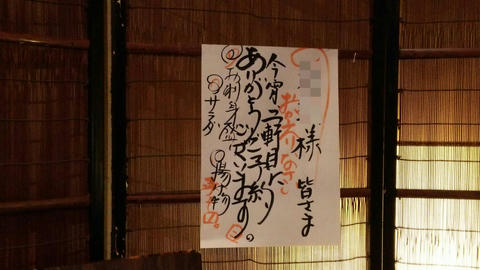 様 皆さま
おかえりなさい
今宵二軒目に
ありがとうご予約
ございます。
お刺身盛
サラダ
揚げ物